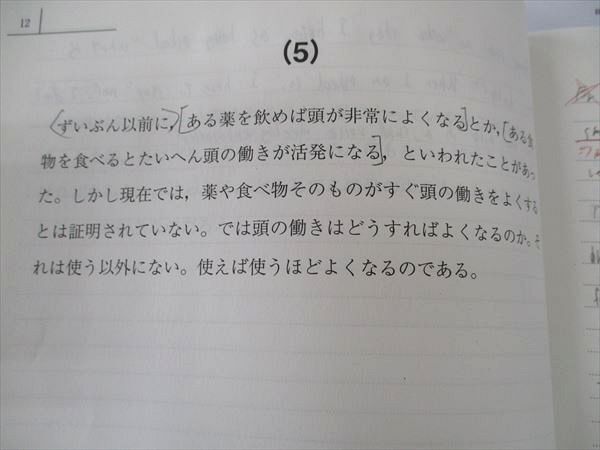 12
(5)
〈ずいぶん以前に,〉[ある薬を飲めば頭が非常によくなる]とか,[ある食
物を食べるとたいへん頭の働きが活発になる], といわれたことがあっ
た。しかし現在では, 薬や食べ物そのものがすぐ頭の働きをよくする
とは証明されていない。では頭の働きはどうすればよくなるのか。そ
れは使う以外にない。使えば使うほどよくなるのである。